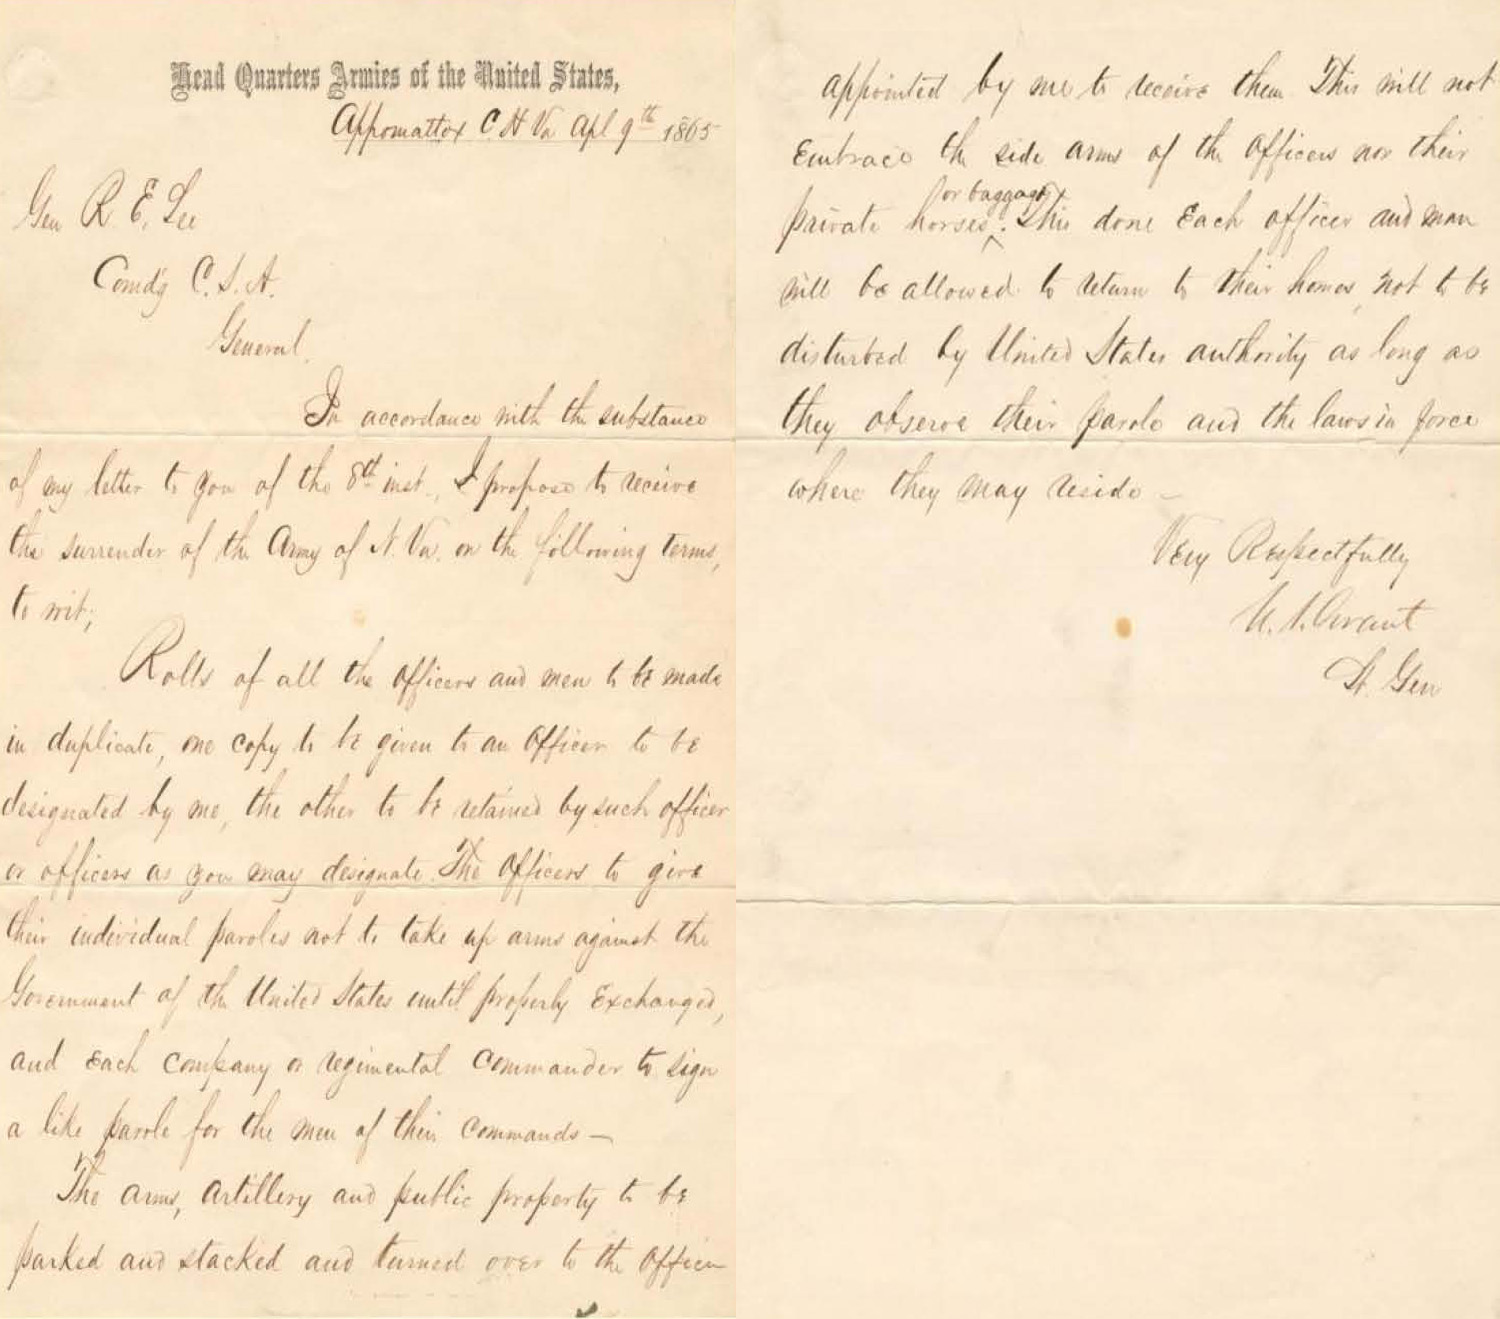 Head Quarters Armies of the United States,
Appomattox C. H. Va Apl 9th 1865
Gen R. E. Lee
Comdg C. S. A.
General.
In accordance with the substance
of my letter to you of the 8th inst., I propose to receive
the surrender of the Army of N. Va. on the following terms,
to wit;
Rolls of all the officers and men to be made
in duplicate, one copy to be given to an officer to be
designated by me, the other to be retained by such officer
or officers as you may designate. The officers to give
their individual paroles not to take up arms against the
Government of the United States until properly Exchanged,
and Each company or regimental commander to sign
a like parole for the men of their commands —
The arms, artillery and public property to be
parked and stacked and turned over to the officer
appointed by me to receive them. This will not
Embrace the side arms of the officers nor their
or baggage
private horses. This done Each officer and man
will be allowed to return to their homes, not to be
disturbed by United States authority as long as
they observe their parole and the laws in force
where they may reside —
Very Respectfully
U. S. Grant
Lt. Gen